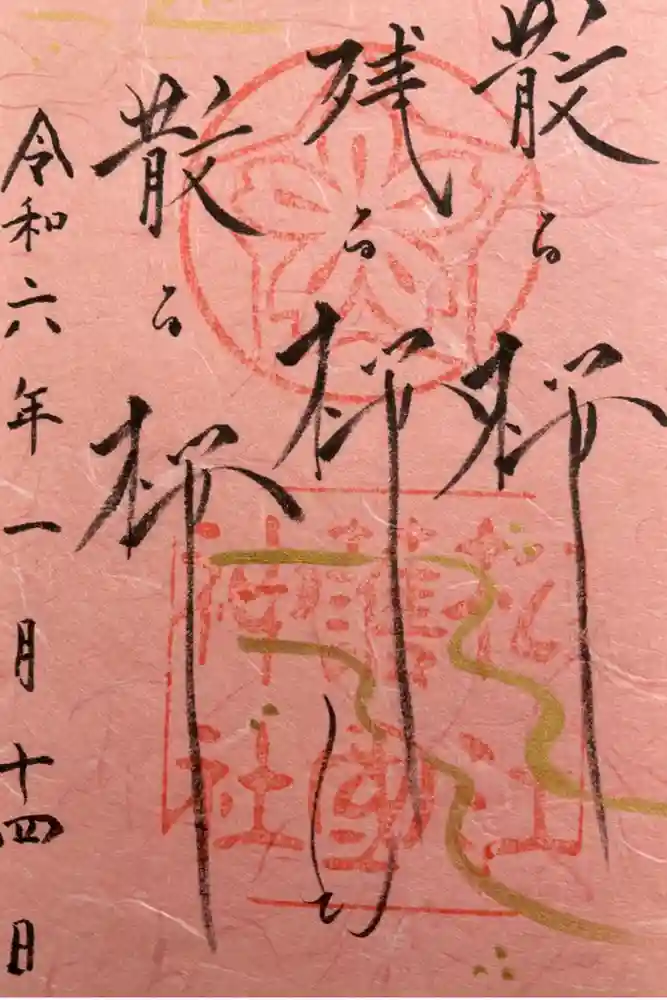 散る桜
残る桜も
散る桜
令和六年一月十四日
松江
護國
神社